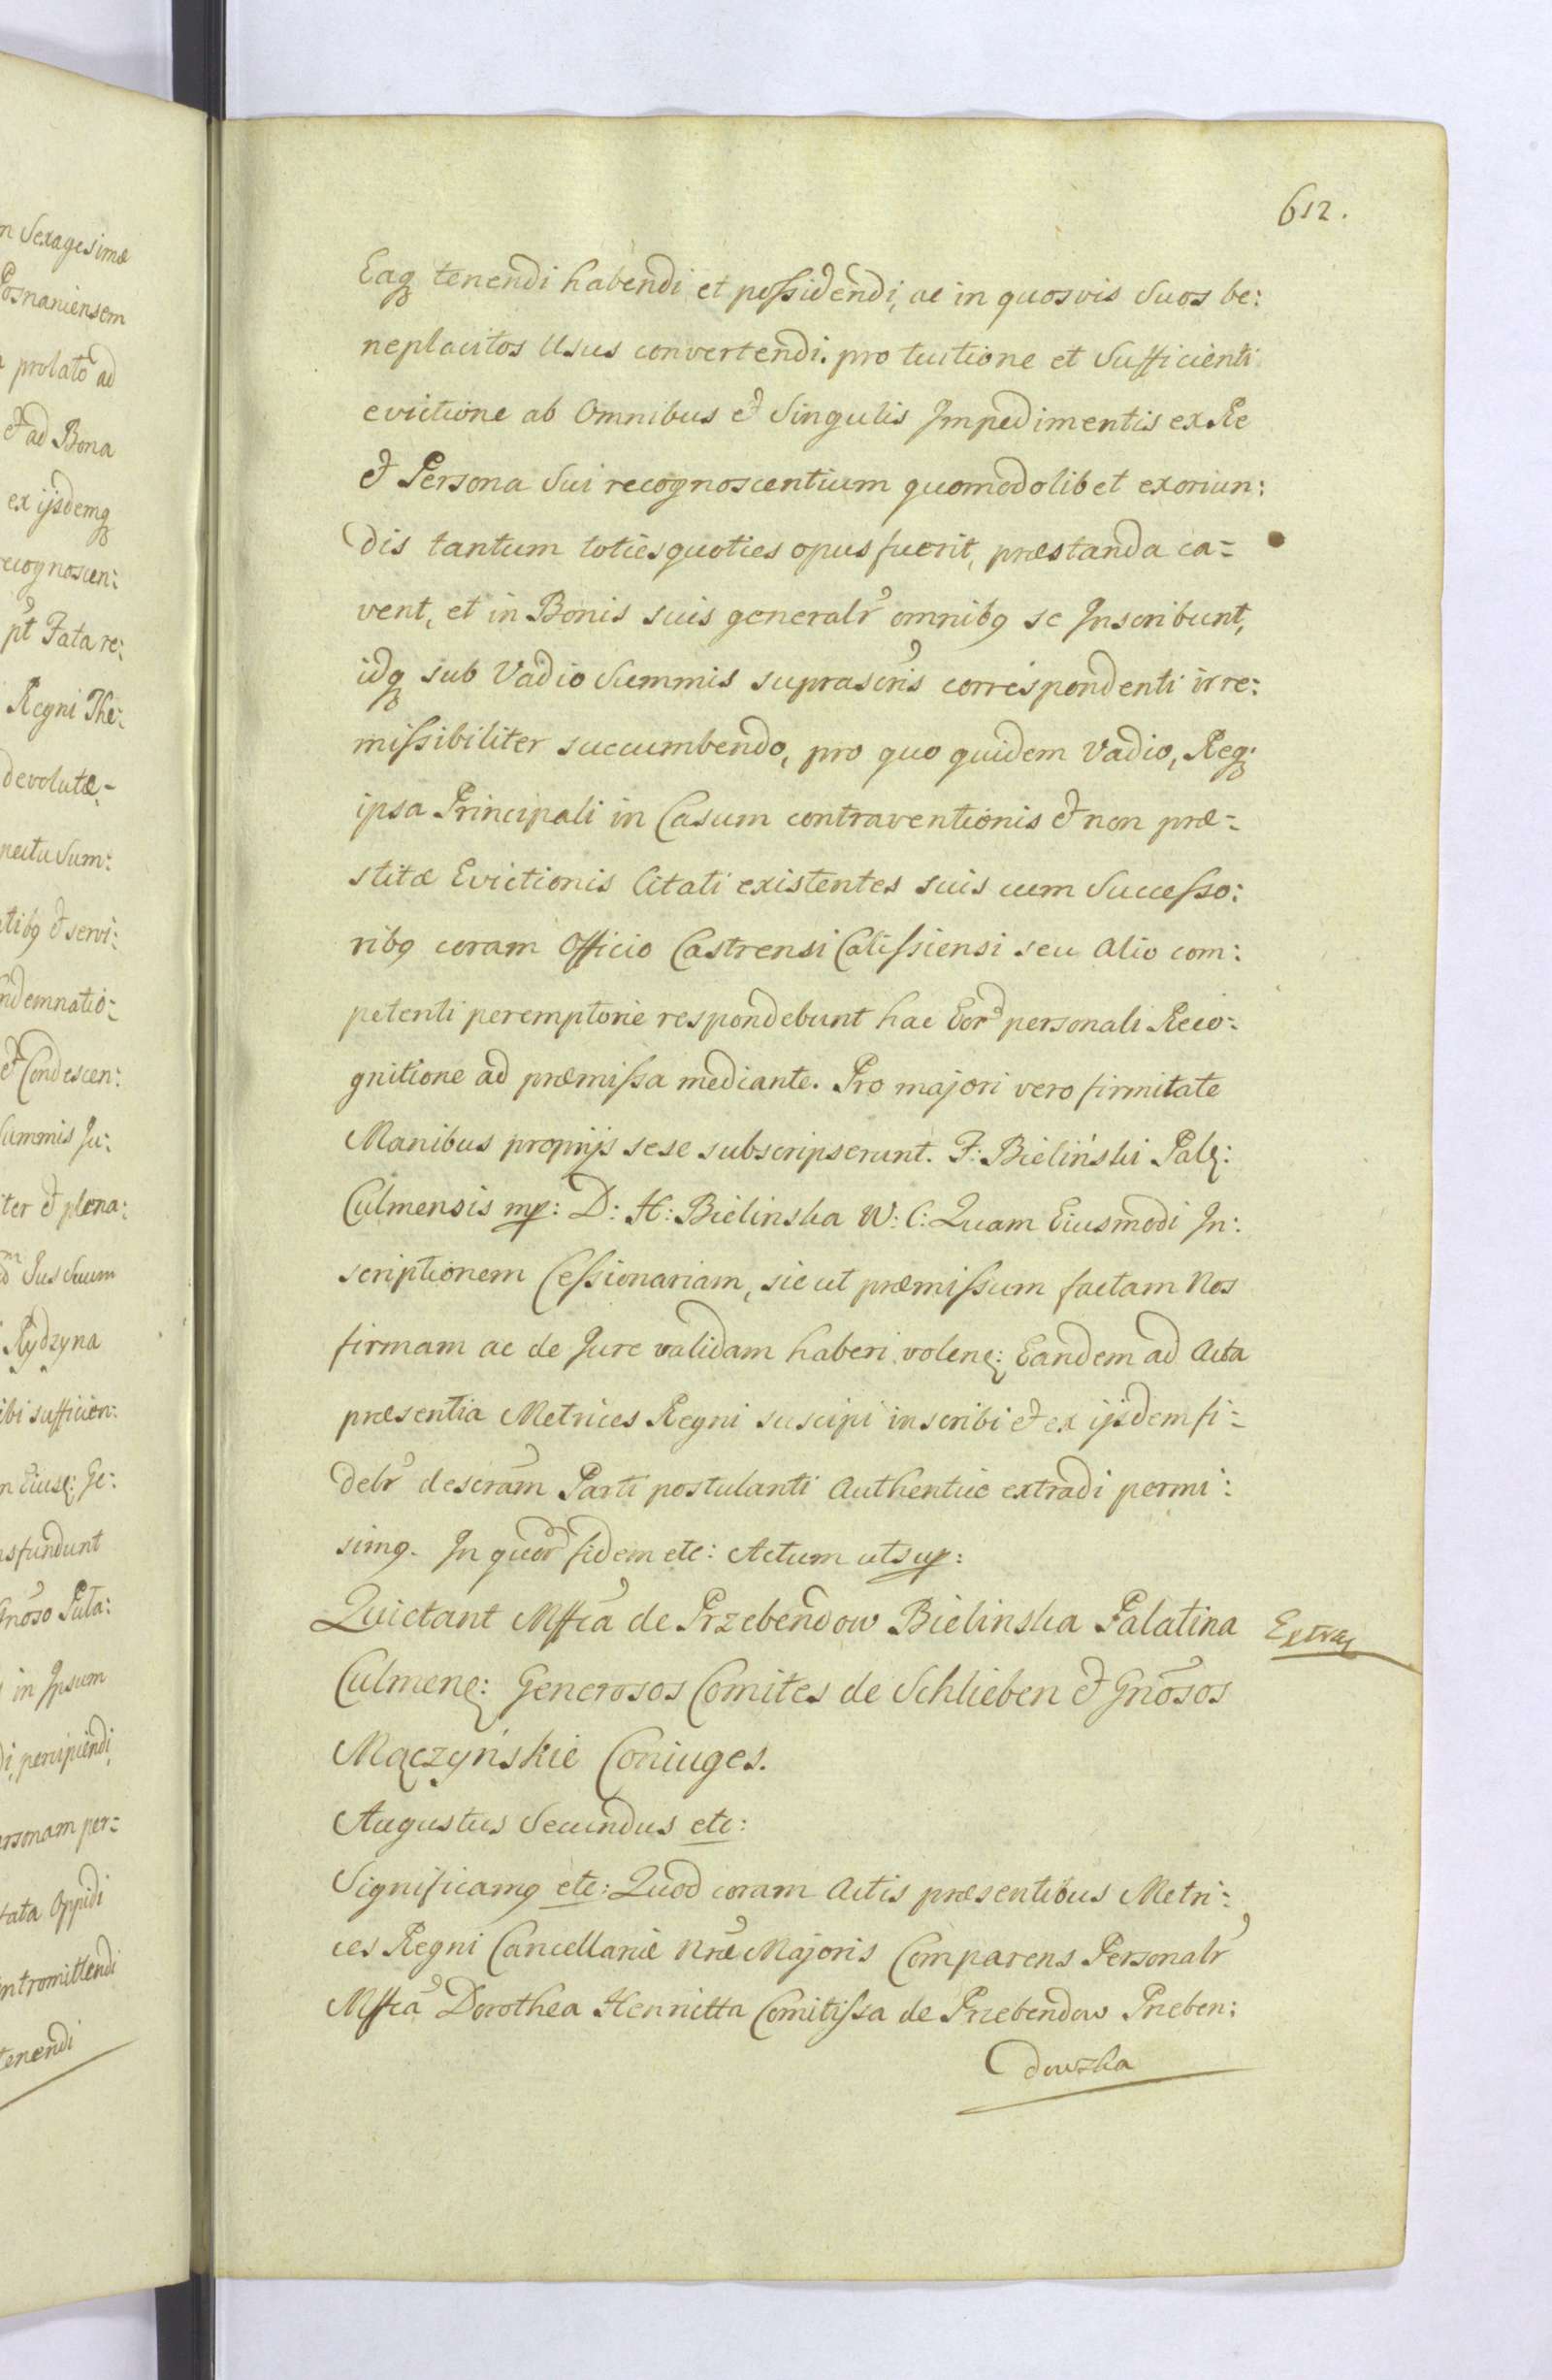 612.
Eaq tenendi habendi et possidendi, ac in quosvis Suos be:
neplacitos Usus convertendi. pro tuitione et Sufficienti
evictione ab Omnibus et Singulis Impedimentis ex Re
et Persona Sui recognoscentium quomodolibet exoriun:
dis tantum totiesquoties opus fuerit, præstanda ca=
vent, et in Bonis suis generalr omnibq se Inscribunt,
idq sub Vadio Summis suprascris correspondenti irre:
missibiliter succumbendo, pro quo quidem Vadio, Req:
ipsa Principali in Casum contraventionis et non præ=
stitæ Evictionis Citati existentes suis cum Successo:
ribq coram Officio Castrensi Calissiensi seu alio com:
petenti peremptorie respondebunt hac Eord personali Reco=
gnitione ad præmissa mediante. Pro majori vero firmitate
Manibus proprijs sese subscripserunt. F: Bieliński Palę:
Culmensis mp: D: H: Bielinska W: C: Quam Eiusmodi In:
scriptionem Cessionariam, sic ut præmissum factam Nos
firmam ac de Jure validam haberi volenę: Eandem ad Acta
præsentia Metrices Regni suscipi inscribi et ex ijsdem fi=
delr descram Parti postulanti Authentice extradi permi:
simq. In quor fidem etc: Actum utsup:
Quietant Mffca de Przebendow Bielinska Palatina
Extraę
Culmenę: Generosos Comites de Schlieben et Gnosos
Mączyńskie Coniuges.
Augustus Secundus etc:
Significamq etc: Quod coram Actis præsentibus Metri=
ces Regni Cancellariæ Nræ Majoris Comparens Personalr
Mffca Dorothea Henrietta Comitissa de Przebendow Przeben:
dowska
n Sexagesimæ
Posnaniensem
prolato ad
et ad Bona
ex ijsdemq
recognoscen:
pt Fata re:
Regni The:
devolutæ=
Sum:
tibq et servi:
ndemnatio=
et Condescen:
Summis Ju:
iter et plena:
Jus Suum
Rydzyna
ibi sufficien:
n Eiusę: Ge:
nsfundunt
Gnoso Puta:
in Ipsum
di, percipiendi,
ersonam per=
Oppidi
intromittendi
tenendi